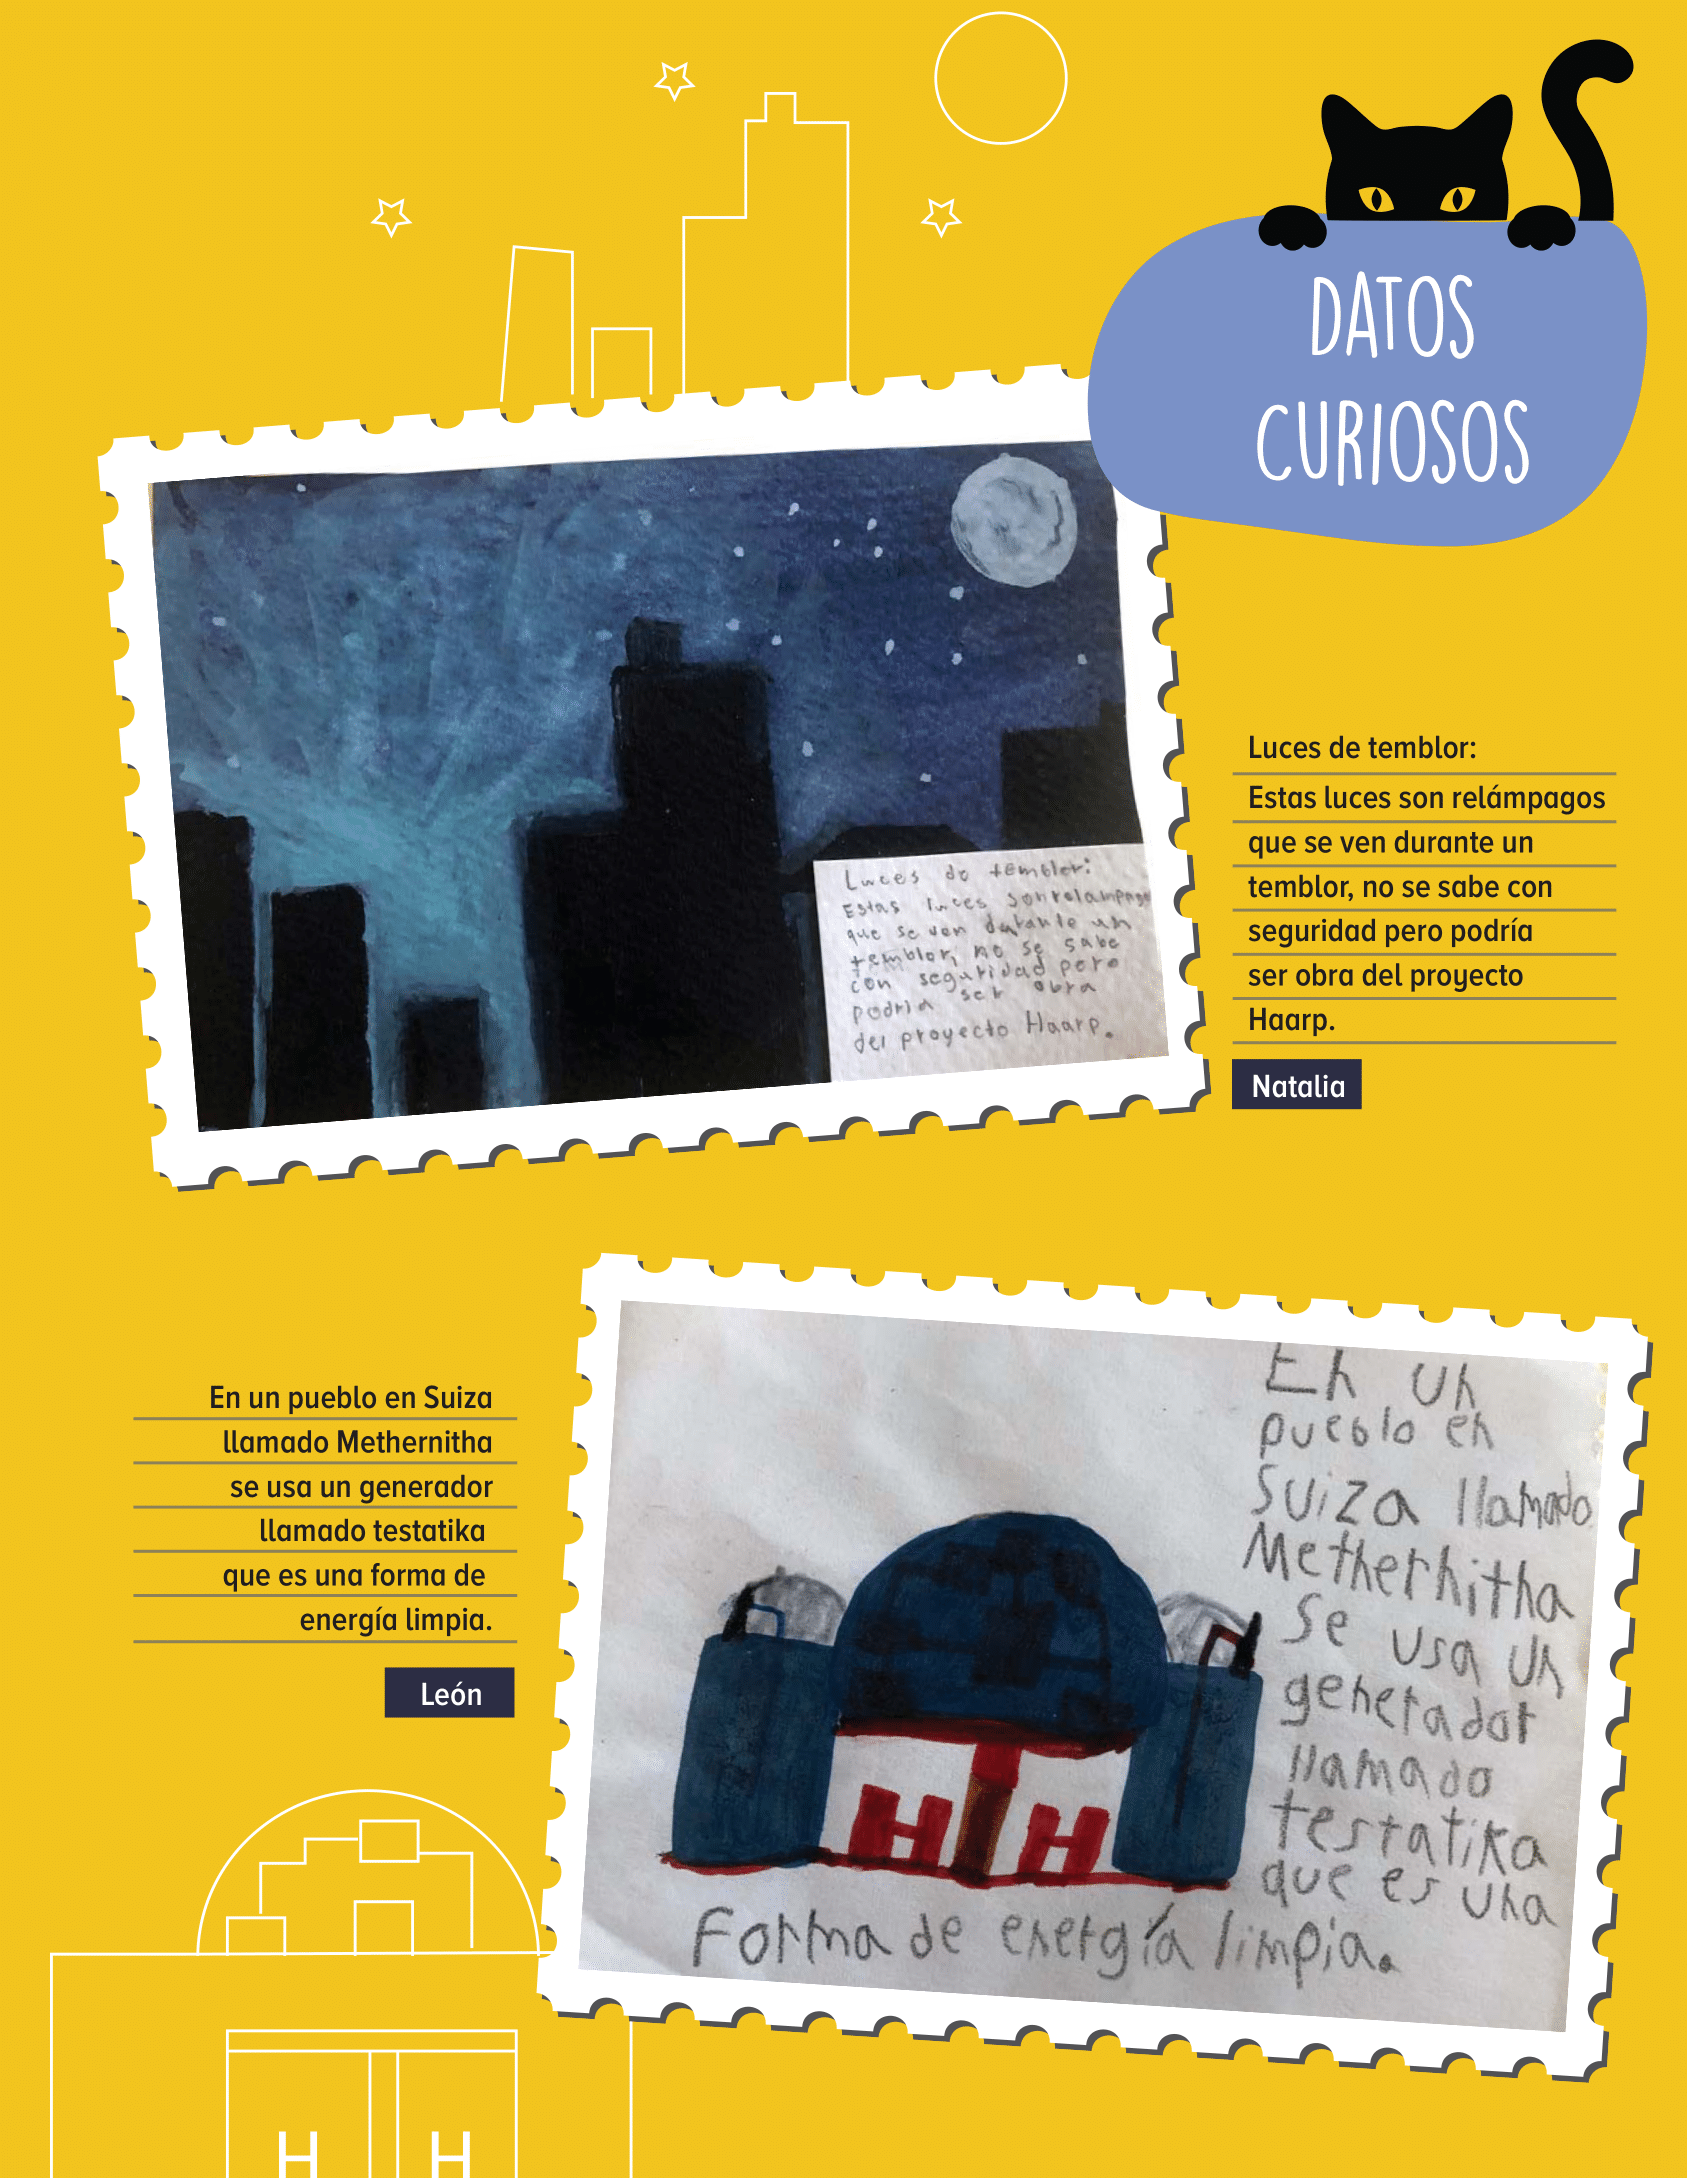 DATOS
CURIOSOS
Luces de temblor:
Estas luces son relámpagos
que se ven durante un
temblor, no se sabe
con seguridad pero
podria ser obra
del proyecto Haarp.
Luces de temblor:
Estas luces son relámpagos
que se ven durante un
temblor, no se sabe con
seguridad pero podría
ser obra del proyecto
Haarp.
Natalia
En un pueblo en Suiza
llamado Methernitha
se usa un generador
llamado testatika
que es una forma de
energía limpia.
León
En un
pueblo en
Suiza llamado
Methernitha
se usa un
generador
llamado
testatika
que es una
Forma de energía limpia.
H H
H H